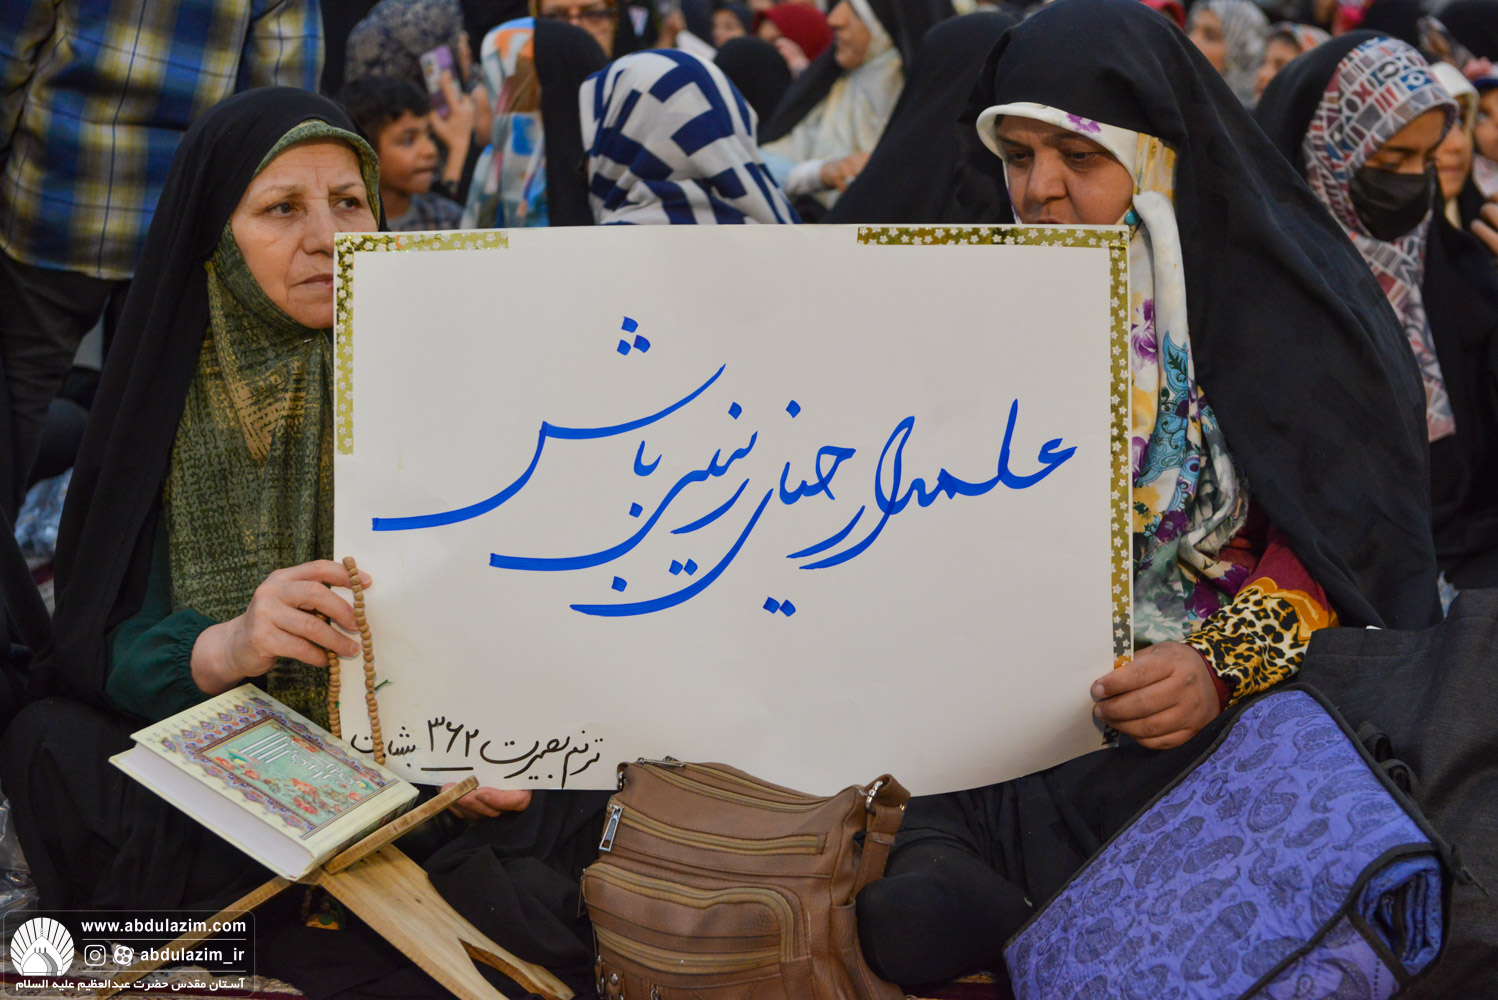 علمدار حیای زینبی باش
ترنم بصیرت ۳۶۲ بشارت
www.abdulazim.com
abdulazim_ir
آستان مقدس حضرت عبدالعظیم علیه السلام